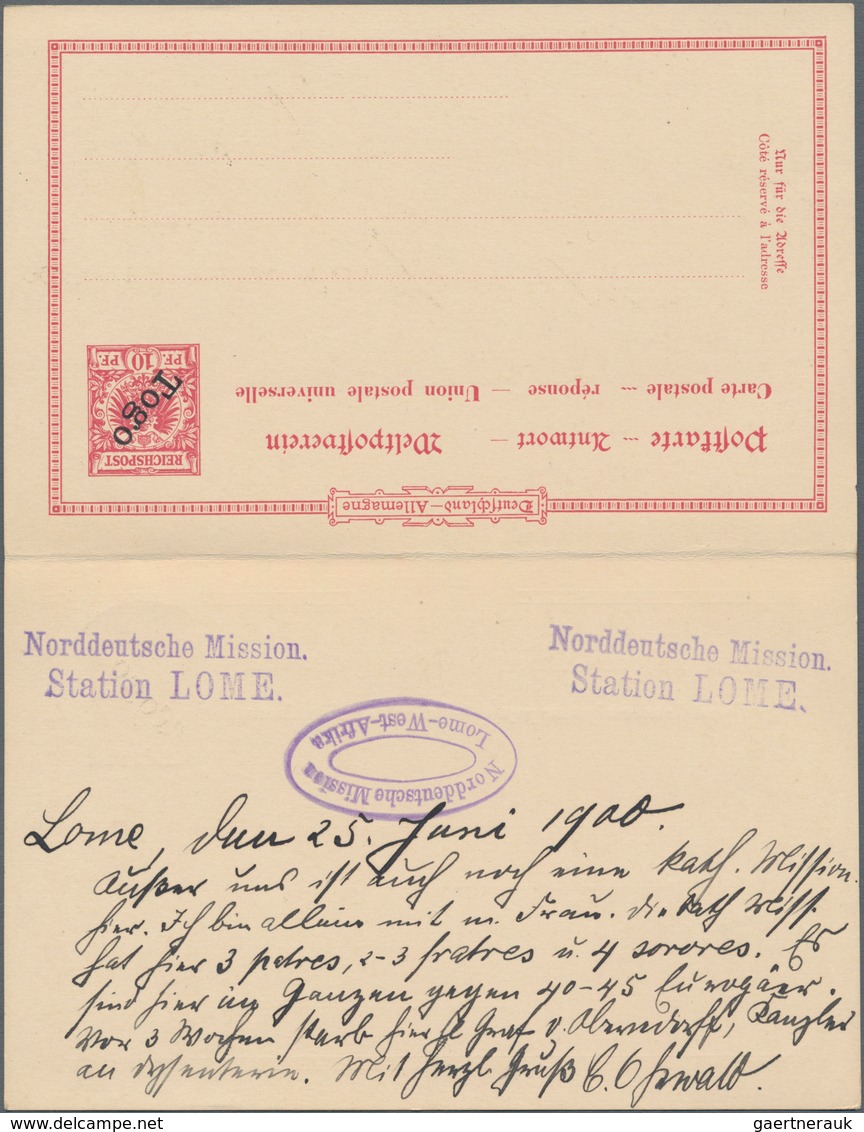 Deutschland–Allemagne
Postkarte — Antwort — Weltpostverein
Carte postale — réponse — Union postale universelle
REICHSPOST
Togo
PF. 10 PF.
Nur für die Adresse
Côté réservé à l'adresse
Norddeutsche Mission.
Station LOME.
Norddeutsche Mission.
Station LOME.
Norddeutsche Mission
Lome-West-Afrika
Lome, den 25. Juni 1900.
Außer uns ist auch noch eine kath. Mission
hier. Ich bin allein mit m. Frau. Die kath Miss.
hat hier 3 patres, 2-3 fratres u. 4 sorores. Es
sind hier im Ganzen gegen 40-45 Europäer.
Vor 3 Wochen starb hier H Graf v. Oberndorff, Kanzler
an Dysenterie. Mit herzl. Gruß C. Oßwald.
gaertnerauk